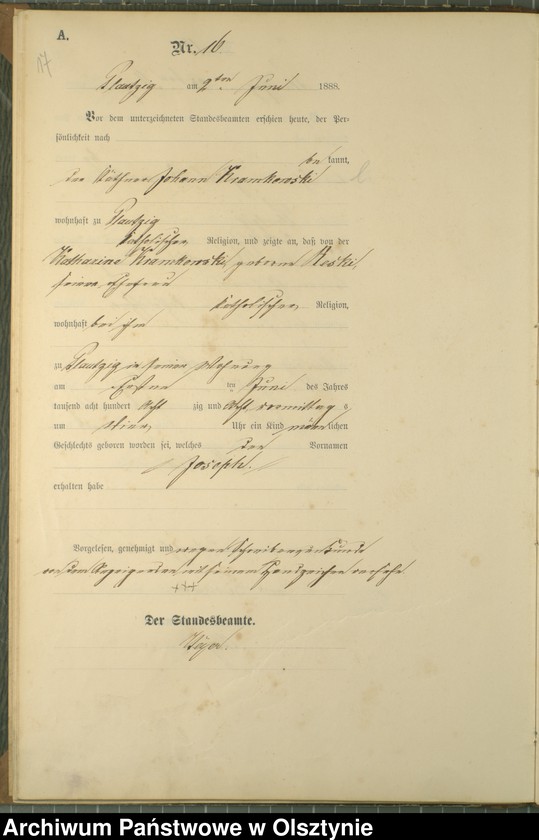 A.
17
Nr. 16
Plautzig am 2ten Juni 1888.
Vor dem unterzeichneten Standesbeamten erschien heute, der Per-
sönlichkeit nach
be kannt,
der Käthner Johann Kramkowski
wohnhaft zu Plautzig
katholischer Religion, und zeigte an, daß von der
Katharine Kramkowski, geborne Reski,
seiner Ehefrau
katholischer Religion,
wohnhaft bei ihm
zu Plautzig in seiner Wohnung
am ersten ten Juni des Jahres
tausend acht hundert acht zig und acht vormittag s
um Uhr ein Kind männ lichen
Geschlechts geboren worden sei, welches den Vornamen
Joseph
erhalten habe
Vorgelesen, genehmigt und wegen Schreibensunkunde
von dem Anzeigenden mit seinem Handzeichen versehn
+++
Der Standesbeamte.
Archiwum Państwowe w Olsztynie